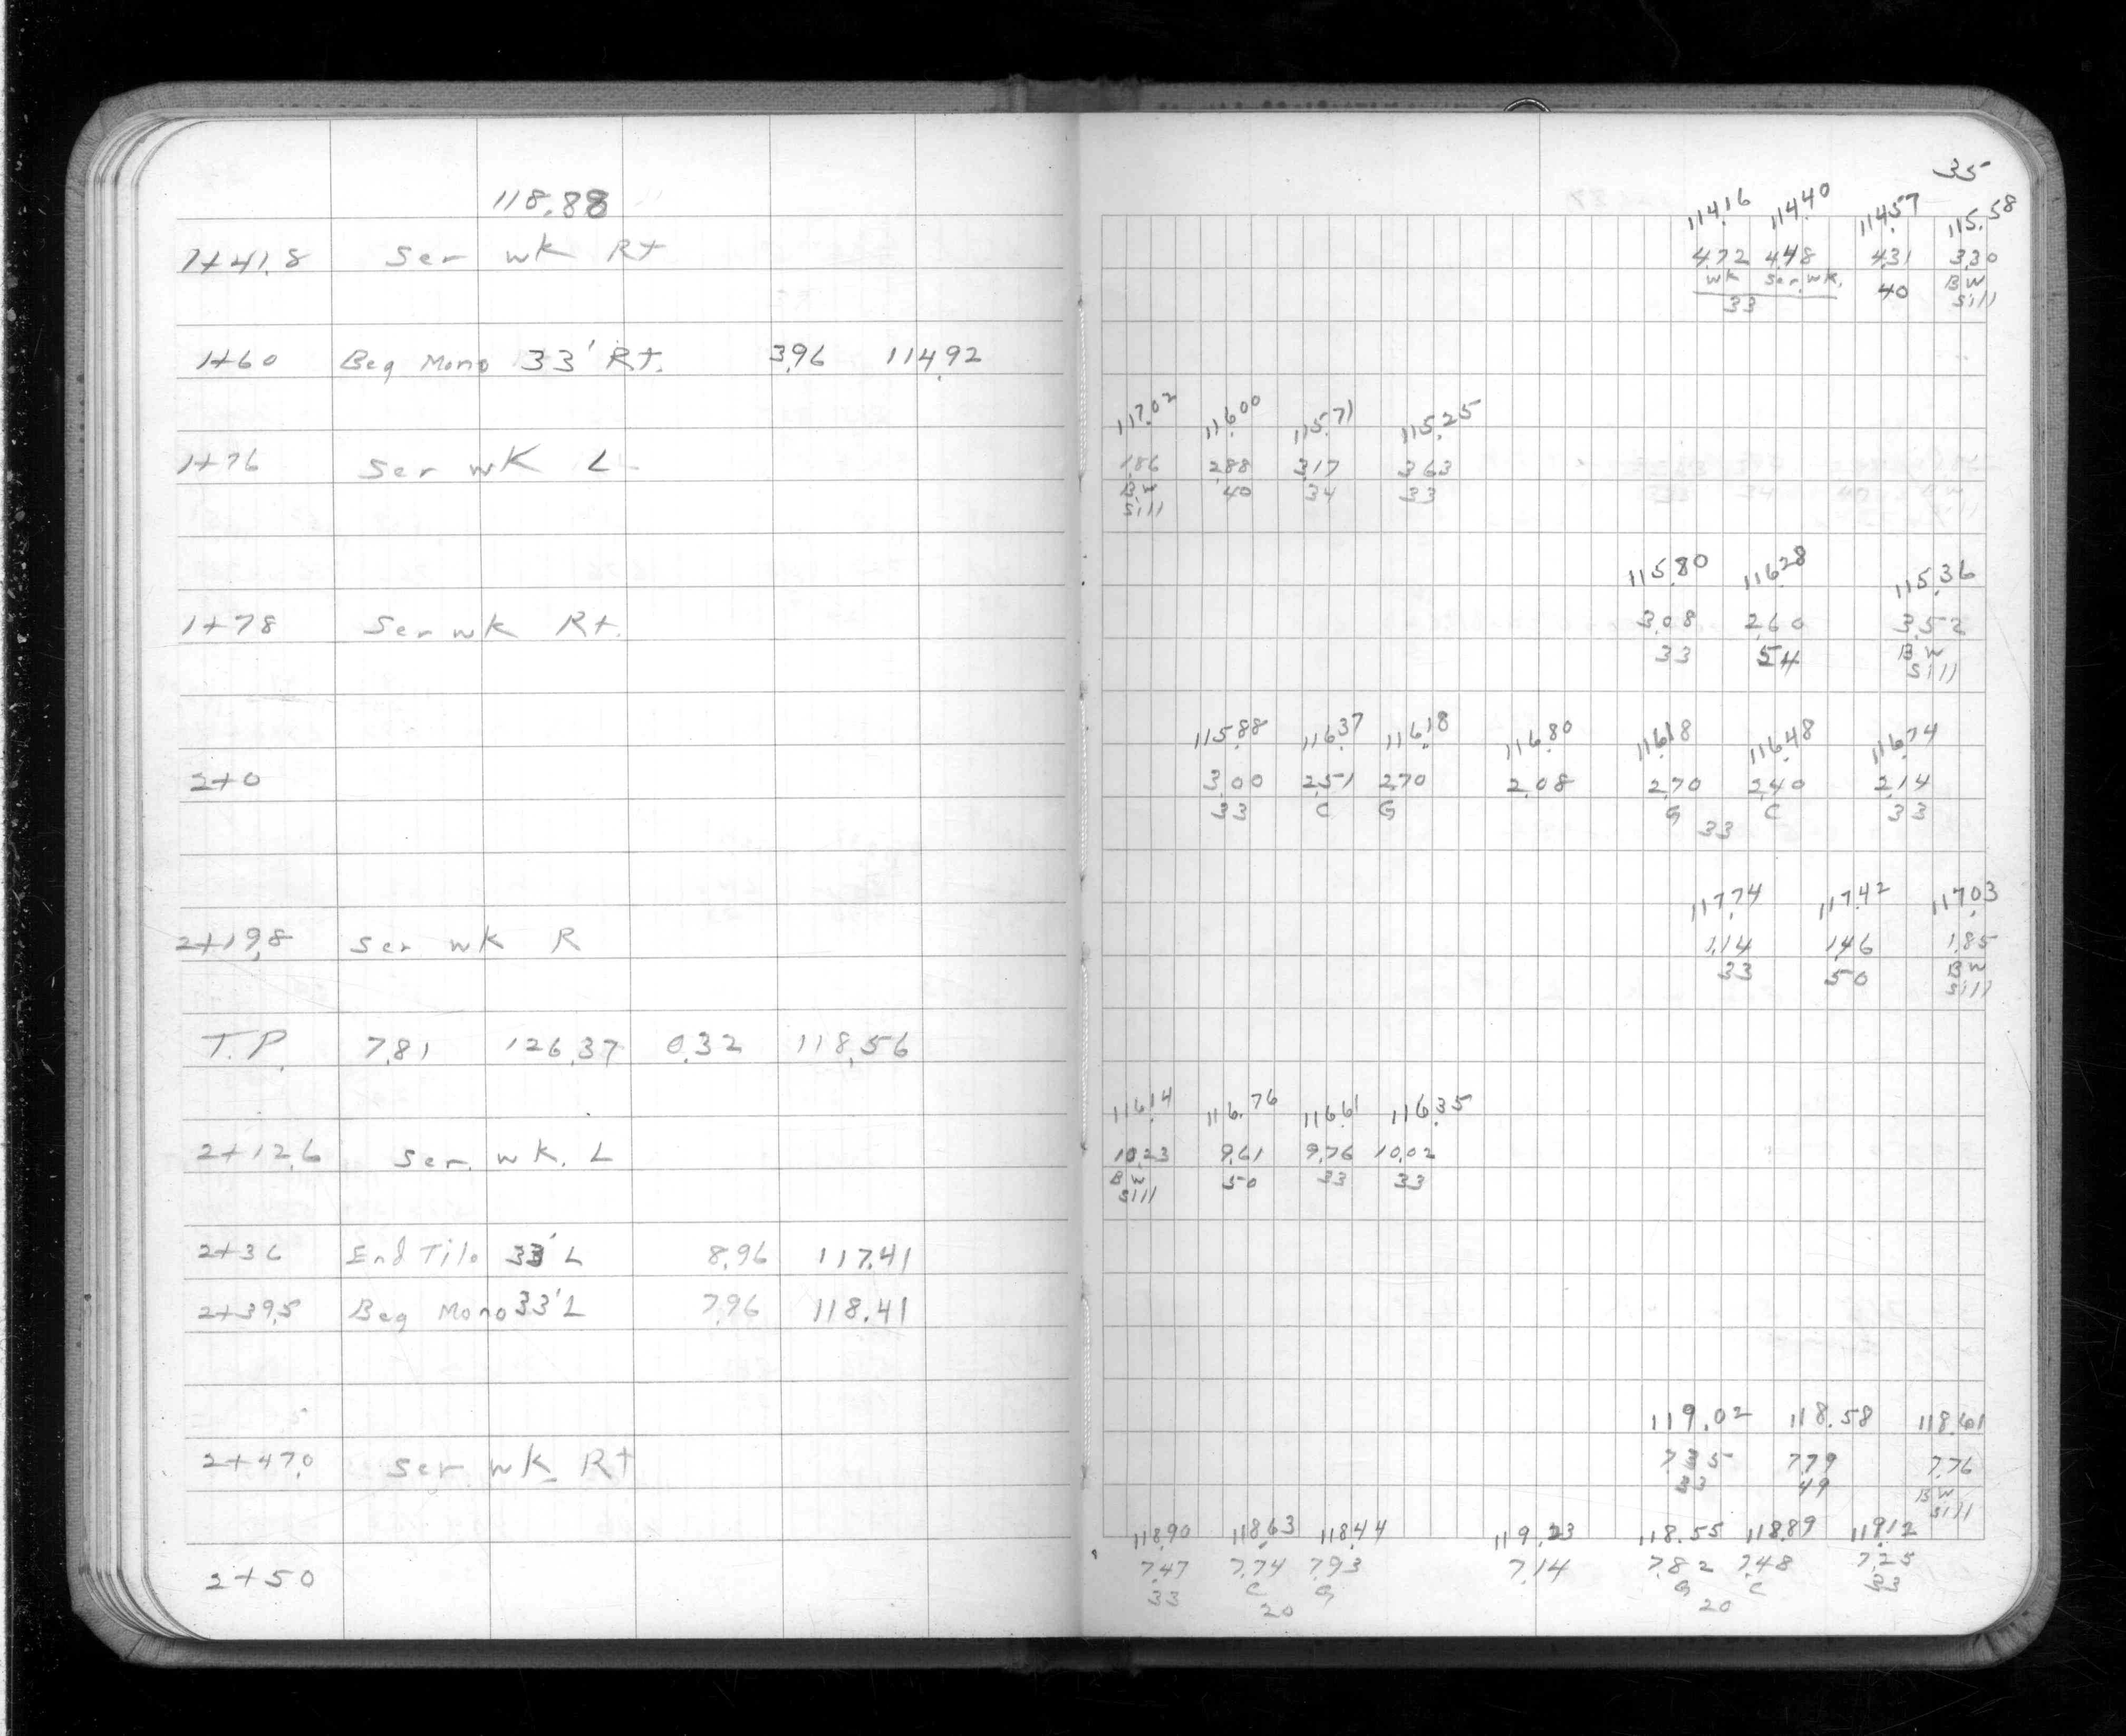 35
118.88
114.16 114.40 114.57 115.58
1+41.8 Ser wk Rt 4.72 4.48 4.31 3.30
wk Ser. wk. 40 BW
33 Sill
1+60 Beg Mono 33' Rt. 3.96 114.92
117.02 116.00 115.71 115.25
1+76 Ser wk L 1.86 2.88 3.17 3.63
B.W 40 34 33
Sill
115.80 116.28 115.36
1+78 Ser wk Rt. 3.08 2.60 3.52
33 54 BW
Sill
115.88 116.37 116.18 116.80 116.18 116.48 116.74
2+0 3.00 2.51 2.70 2.08 2.70 2.40 2.14
33 C G G C 33
33
117.74 117.42 117.03
2+19.8 Ser wk R 1.14 1.46 1.85
33 50 BW
Sill
T.P. 7.81 126.37 0.32 118.56
116.14 116.76 116.61 116.35
2+12.6 Ser. wk. L 10.23 9.61 9.76 10.02
BW 50 33 33
Sill
2+36 End Tile 33' L 8.96 117.41
2+39.5 Beg Mono 33' L 7.96 118.41
119.02 118.58 118.61
2+47.0 Ser. wk. Rt 7.35 7.79 7.76
33 49 BW
Sill
118.90 118.63 118.44 119.23 118.55 118.89 119.12
2+50 7.47 7.74 7.93 7.14 7.82 7.48 7.25
33 C G G C 33
20 20